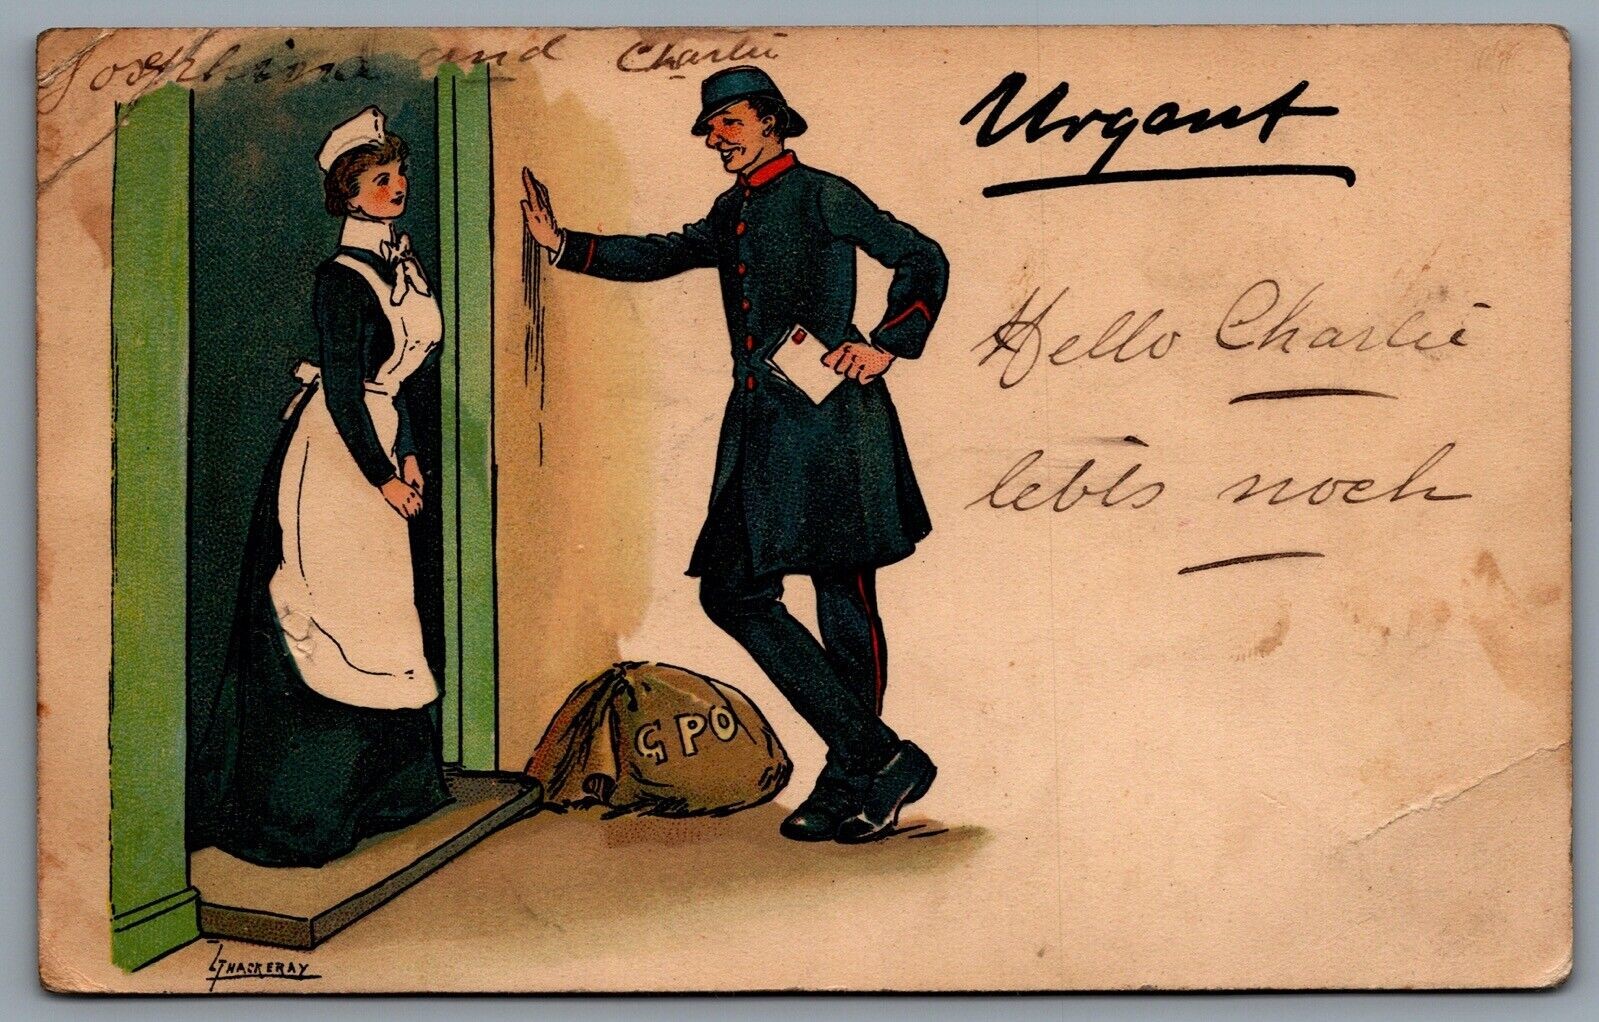 Josephine and Charlie
Urgent
Hello Charlie
lebts noch
GPO
L THACKERAY